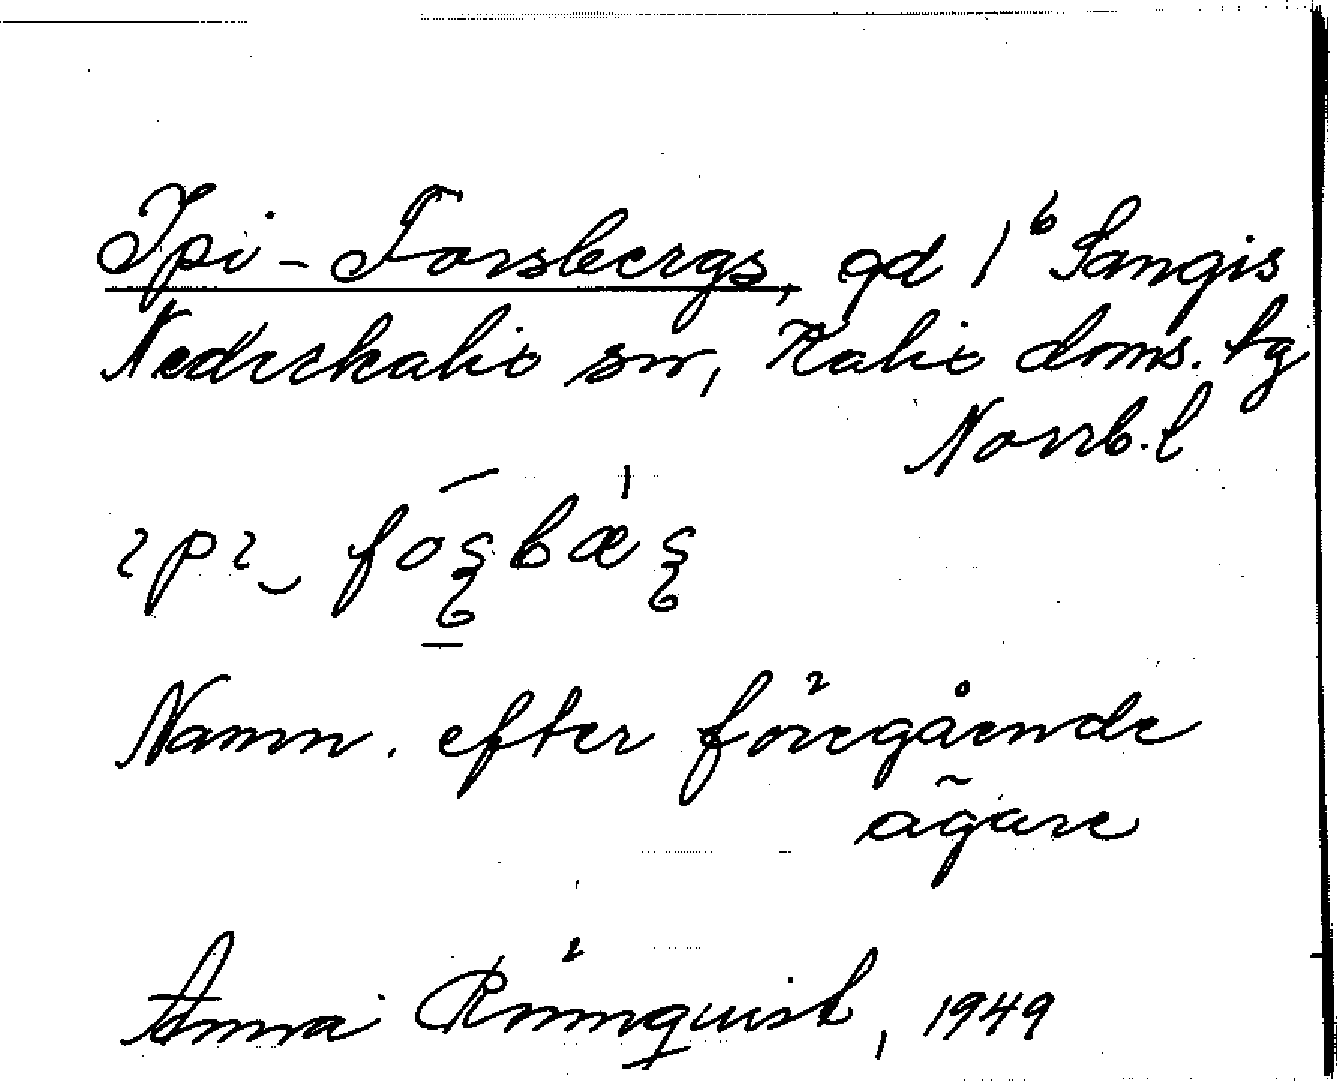 Ipi-Forsbergs, gd 1⁶ Sangis
Nederkalix sn, Kalix doms. tg
Norrb. l
Namn. efter föregående
ägare
Anna Rönnquist, 1949